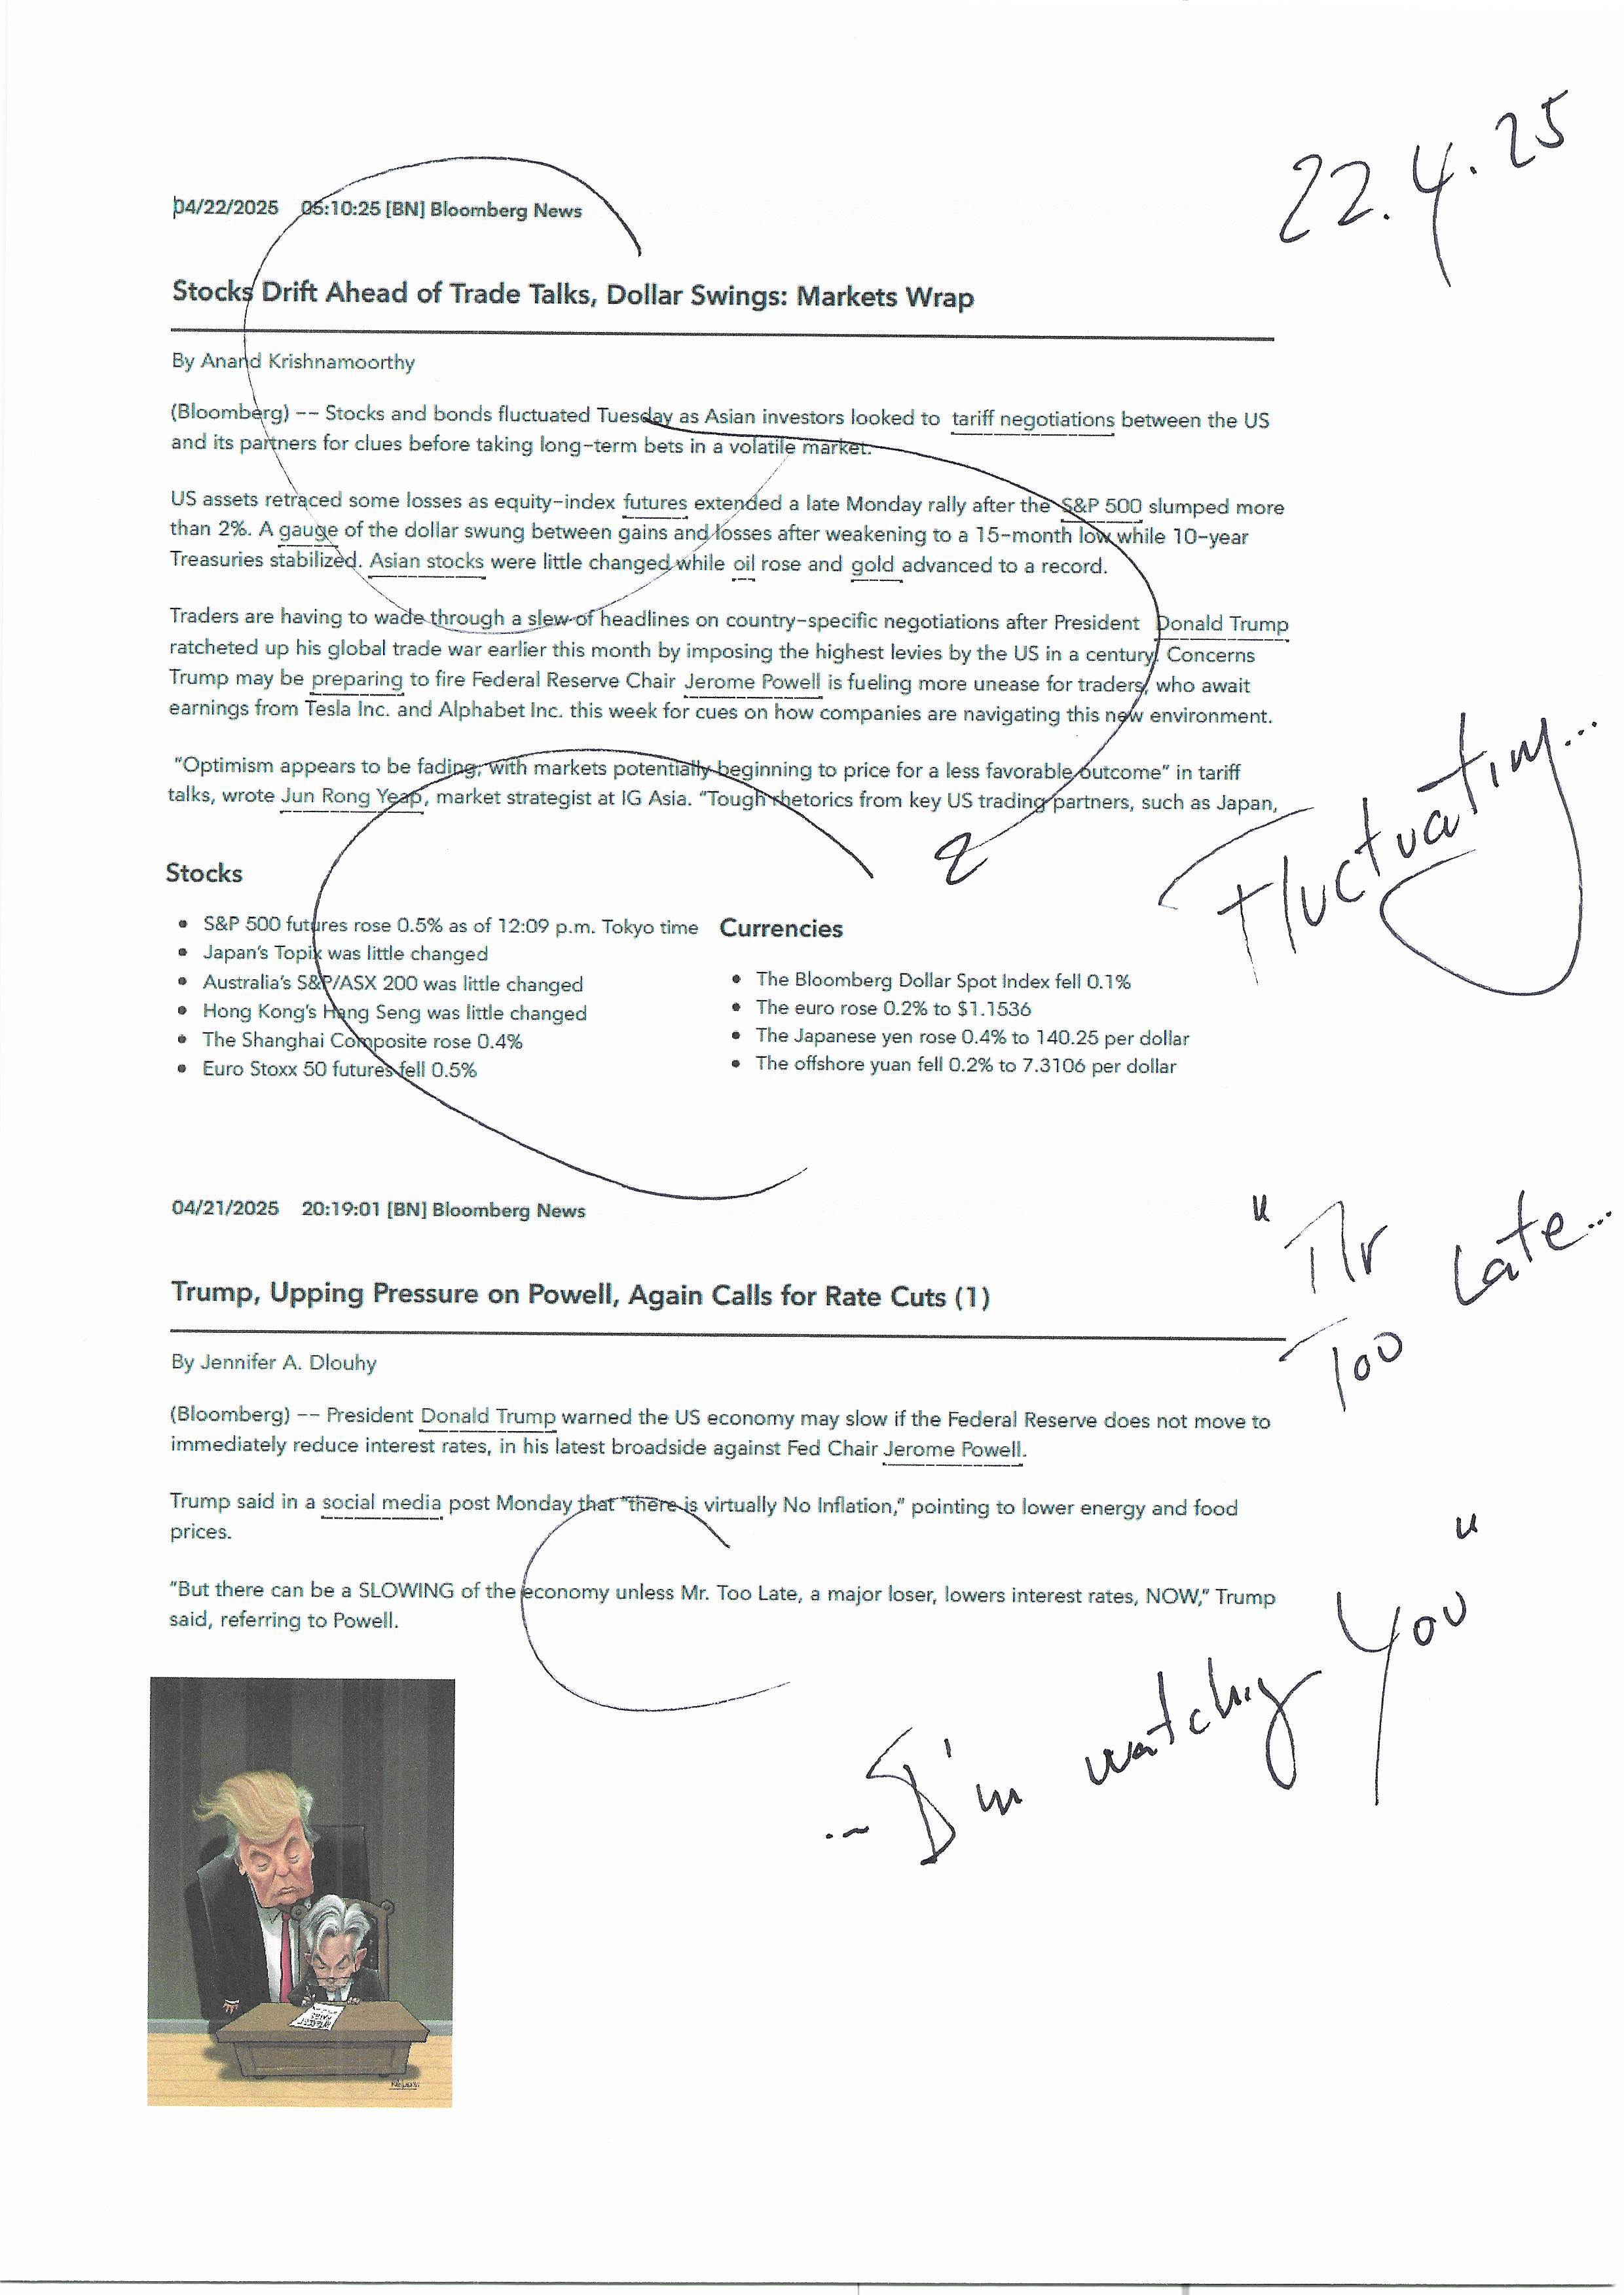 22.4.25
04/22/2025 05:10:25 [BN] Bloomberg News
Stocks Drift Ahead of Trade Talks, Dollar Swings: Markets Wrap
By Anand Krishnamoorthy
(Bloomberg) -- Stocks and bonds fluctuated Tuesday as Asian investors looked to tariff negotiations between the US
and its partners for clues before taking long-term bets in a volatile market.
US assets retraced some losses as equity-index futures extended a late Monday rally after the S&P 500 slumped more
than 2%. A gauge of the dollar swung between gains and losses after weakening to a 15-month low while 10-year
Treasuries stabilized. Asian stocks were little changed while oil rose and gold advanced to a record.
Traders are having to wade through a slew of headlines on country-specific negotiations after President Donald Trump
ratcheted up his global trade war earlier this month by imposing the highest levies by the US in a century. Concerns
Trump may be preparing to fire Federal Reserve Chair Jerome Powell is fueling more unease for traders, who await
earnings from Tesla Inc. and Alphabet Inc. this week for cues on how companies are navigating this new environment.
"Optimism appears to be fading, with markets potentially beginning to price for a less favorable outcome" in tariff
talks, wrote Jun Rong Yeap, market strategist at IG Asia. "Tough rhetorics from key US trading partners, such as Japan,
Fluctuating...
Stocks
• S&P 500 futures rose 0.5% as of 12:09 p.m. Tokyo time
• Japan's Topix was little changed
• Australia's S&P/ASX 200 was little changed
• Hong Kong's Hang Seng was little changed
• The Shanghai Composite rose 0.4%
• Euro Stoxx 50 futures fell 0.5%
Currencies
• The Bloomberg Dollar Spot Index fell 0.1%
• The euro rose 0.2% to $1.1536
• The Japanese yen rose 0.4% to 140.25 per dollar
• The offshore yuan fell 0.2% to 7.3106 per dollar
04/21/2025 20:19:01 [BN] Bloomberg News
"Mr
Too Late...
Trump, Upping Pressure on Powell, Again Calls for Rate Cuts (1)
By Jennifer A. Dlouhy
(Bloomberg) -- President Donald Trump warned the US economy may slow if the Federal Reserve does not move to
immediately reduce interest rates, in his latest broadside against Fed Chair Jerome Powell.
Trump said in a social media post Monday that "there is virtually No Inflation," pointing to lower energy and food
prices.
"But there can be a SLOWING of the economy unless Mr. Too Late, a major loser, lowers interest rates, NOW," Trump
said, referring to Powell.
... I'm watching You"